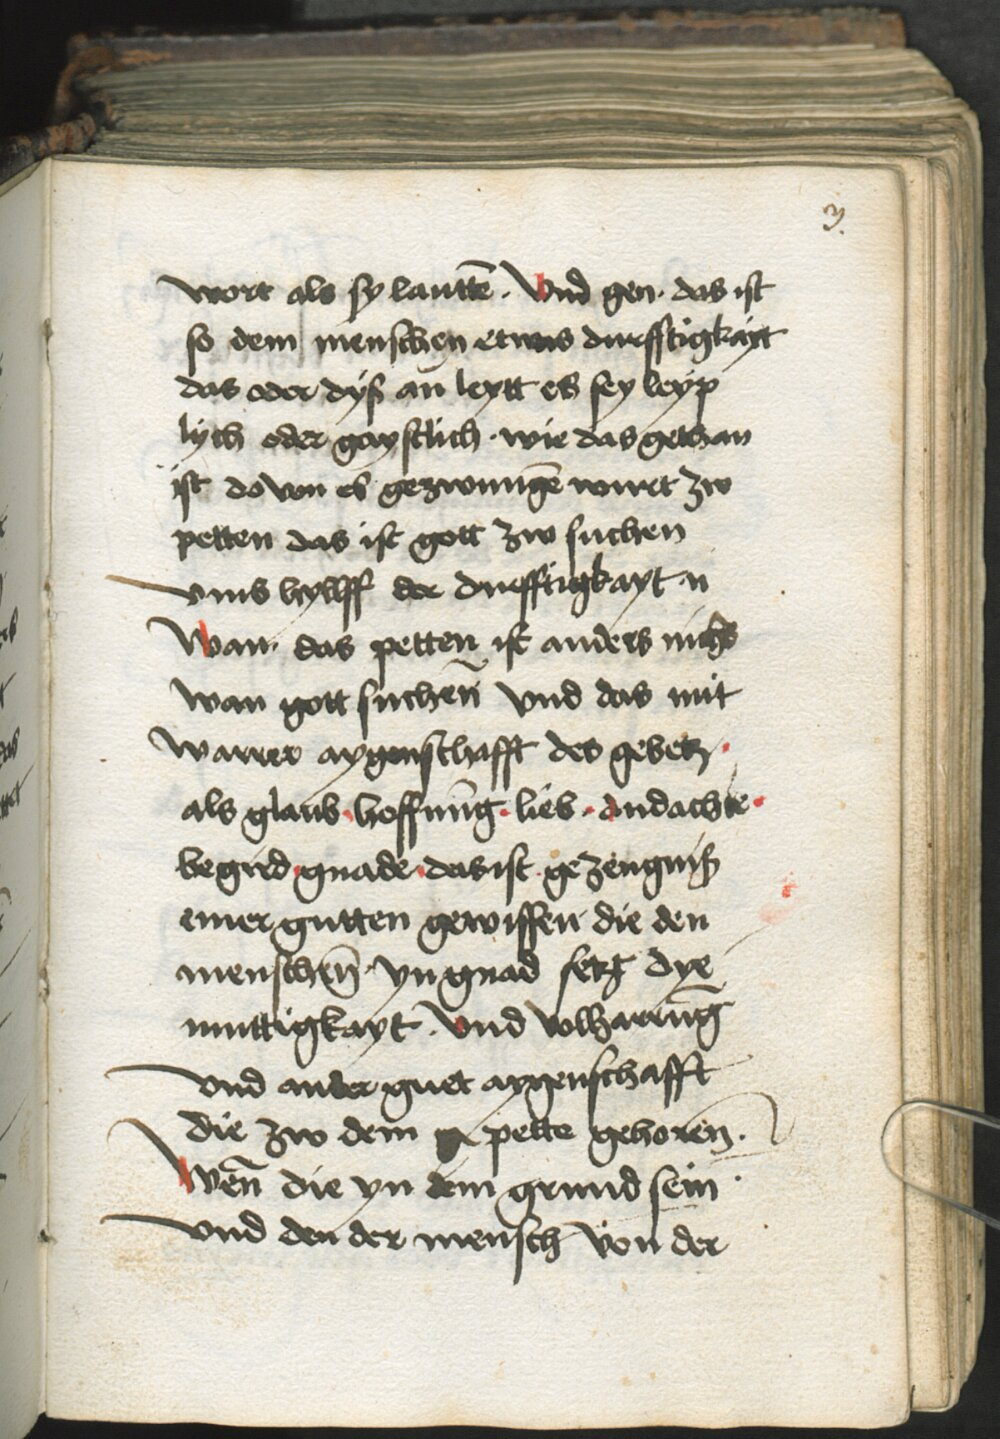 3.
wort als sy lauttē. Vnd gen. das ist
so dem menschen etwas durfftigkayt
das oder dyß an leytt es sey leyp
lych oder gaystlich. wie das gethan
ist do von es gezwungē wirt zw
petten das ist gott zw suchen
vmb hylff der durfftigkayt
Wan. das petten ist anders nichs
wan gott suchen̄ vnd das mit
warer aygenschafft des gebetz.
als glaub. hoffnūg. lieb. andacht.
begird. gnade. das ist. gezeugniß
einer gutten gewissen die den
menschen̄. yn gnad setzt dye
muttigkayt. Vnd volharrūg
vnd ander guet aygenschafft
die zw dem gepette gehoren̄.
Wen̄ die yn dem grund sein
vnd den der mensch von der